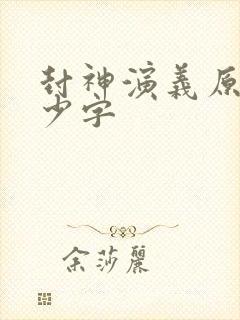 封神演義原
少字
余莎麗